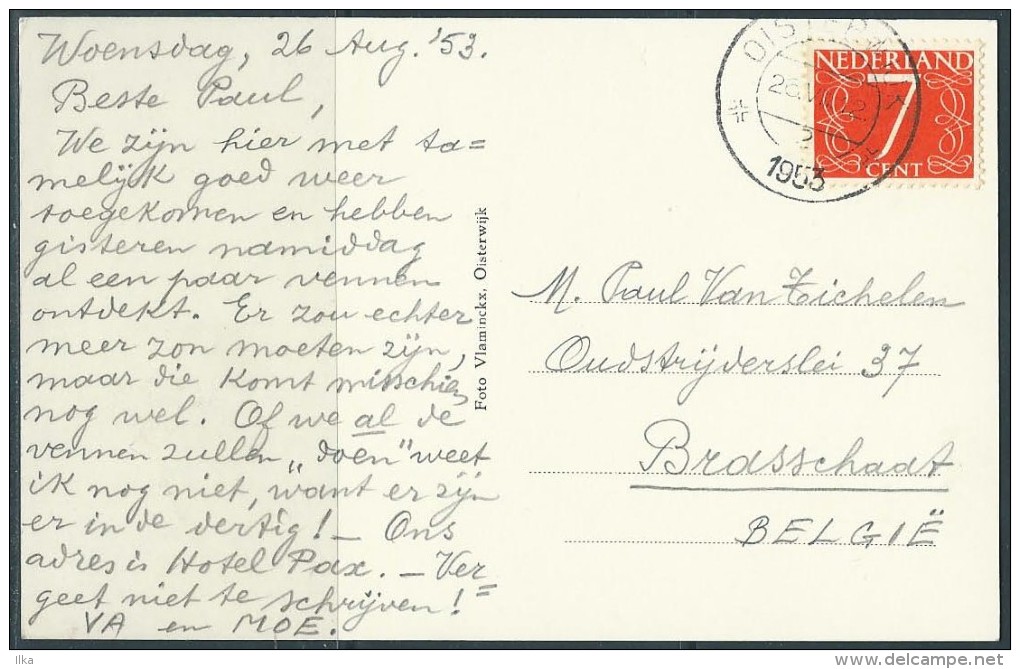 Woensdag, 26 Aug. '53.
Beste Paul,
We zijn hier met ta=
melijk goed weer
toegekomen en hebben
gisteren namiddag
al een paar vennen
ontdekt. Er zou echter
meer zon moeten zijn,
maar die komt misschien
nog wel. Of we al de
vennen zullen „doen" weet
ik nog niet, want er zijn
er in de dertig! — Ons
adres is Hotel Pax. — Ver=
geet niet te schrijven!
VA en MOE.
Foto Vlaminckx, Oisterwijk
OISTERWIJK
1953
NEDERLAND
7
CENT
M. Paul Van Tichelen
Oudstrijderslei 37
Brasschaat
BELGIË
Ilka
delcampe.net